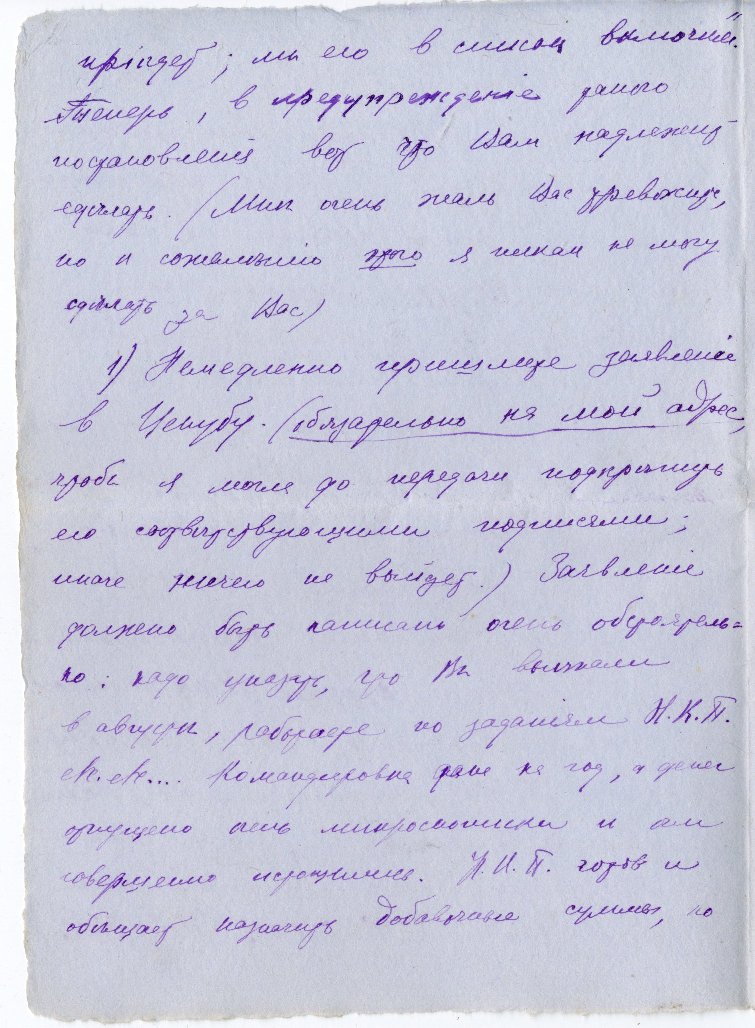 прiѣдет; мы его в список включим."
Теперь, в предупрежденiе такого
постановленiя вот что Вам надлежит
сдѣлать. (Мнѣ очень жаль Вас тревожить,
но к сожалѣнiю этого я никак не могу
сдѣлать за Вас)
1) Немедленно пришлите заявленiе
в Цекубу. (обязательно на мой адрес,
чтобы я могла до передачи подкрѣпить
его соотвѣтствующими подписями;
иначе ничего не выйдет.) Заявленiе
должно быть написано очень обстоятель=
но: надо указать, что Вы выѣхали
в августѣ, работаете по заданiям Н.К.П.
Командировка дана на год, а денег
отпущено очень микроскопически и они
совершенно истощились. Н.К.П. готов и
обѣщает назначить добавочные суммы, но